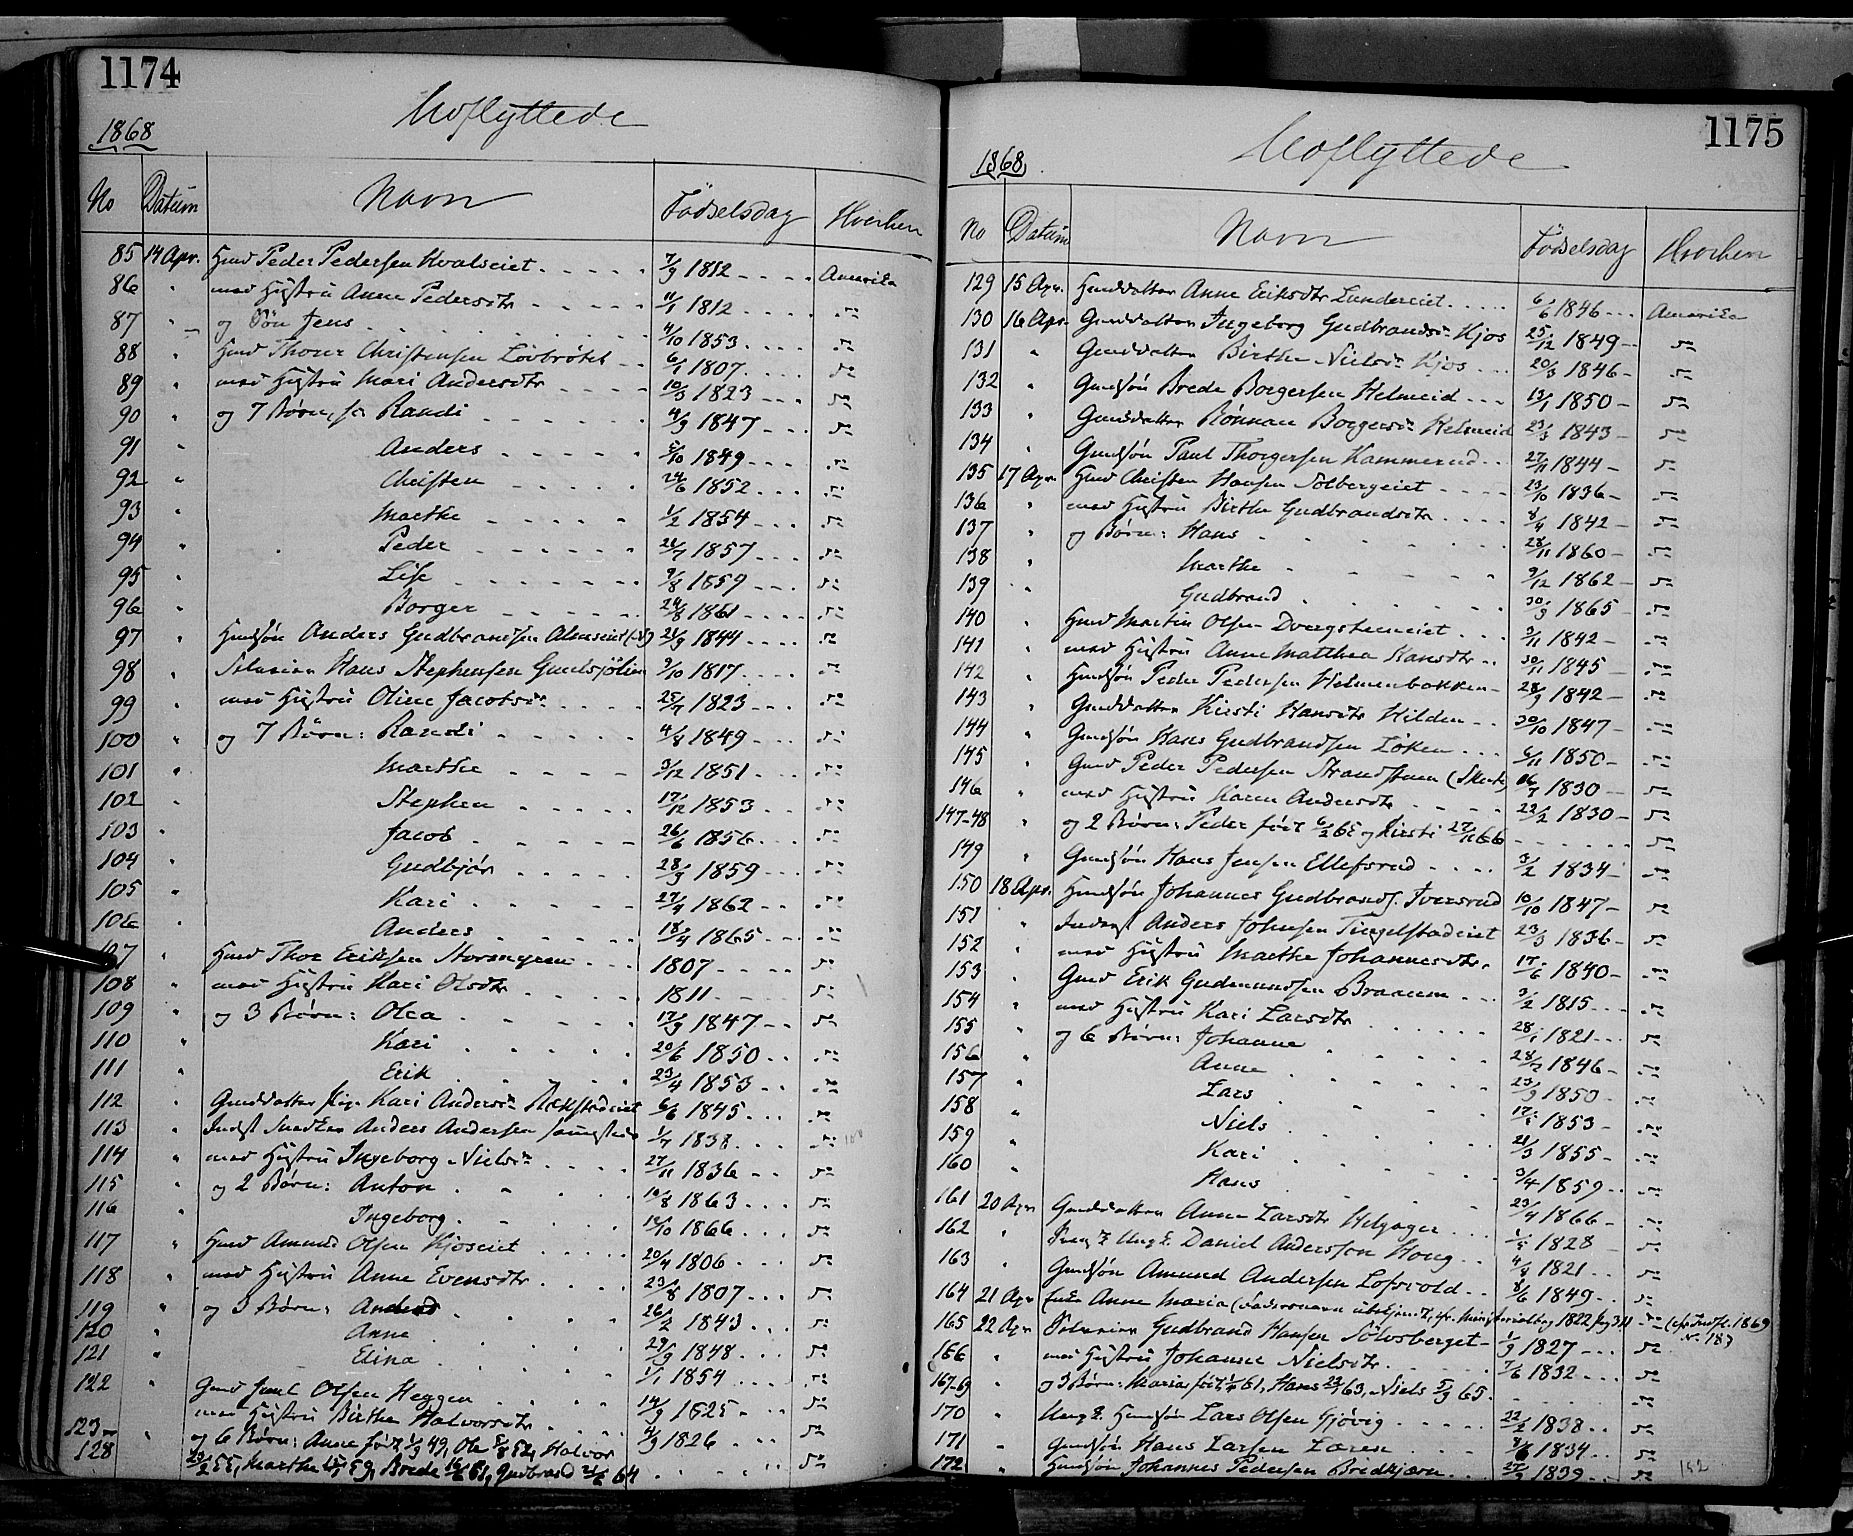 1174
1868
Udflyttede
No Datum Navn Fødselsdag Hvorhen
85 14 Apr. Husmd Peder Pedersen Kvalseiet 7/9 1812 Amerika
86 " med Hustru Anne Pedersdtr 11/1 1812 do
87 " og Søn Jens 4/10 1853 do
88 " Husmd Thorer Christensen Lövbrötet 6/1 1807 do
89 " med Hustru Mari Andersdtr 10/3 1823 do
90 " og 7 Børn, Randi 4/9 1847 do
91 " Anders 5/10 1849 do
92 " Christen 24/6 1852 do
93 " Marthe 1/2 1854 do
94 " Peder 1857 do
95 " Lise 9/8 1859 do
96 " Borger 24/8 1861 do
97 " Husmsøn Anders Gudbrandsen Almseiet 1844 do
98 " Selveier Hans Stephensen 9/10 1817 do
99 " med Hustru Oline Jacobsdr 25/7 1823 do
100 " og 7 Børn: Randi 4/8 1849 do
101 " Marthe 3/12 1851 do
102 " Stephen 17/12 1853 do
103 " Jacob 26/6 1856 do
104 " Gudbjør 28/9 1859 do
105 " Kari 27/4 1862 do
106 " Anders 18/4 1865 do
107 " Husmd Thor Eriksen 1807 do
108 " med Hustru Kari Olsdtr 1811 do
109 " og 3 Børn: Olea 17/9 1847 do
110 " Kari 20/6 1850 do
111 " Erik 23/4 1853 do
112 " Gaarddatter Pige Kari Andersdr 6/6 1845 do
113 " Inds Snedker Anders Andersen 1/7 1838 do
114 " med Hustru Ingeborg Nielsdr 27/11 1836 do
115 " og 2 Børn: Anton 10/8 1863 do
116 " Ingeborg 12/10 1866 do
117 " Husmd Amund Olsen Kjoseiet 20/4 1806 do
118 " med Hustru Anne Evensdtr 23/8 1807 do
119 " og 3 Børn: 26/2 1843 do
120 " Anne 29/9 1848 do
121 " Elina 1/1 1854 do
122 " Gmd Olsen Heggen 14/9 1825 do
123 " med Hustru Birthe Halvorsdtr 4/9 1826 do
128 og 6 Børn: Anne født 1/9 49, Ole 52, Halvor
55, Marthe 59, Brede 61, Gudbrand 64 do
1175
1868
Udflyttede
No Datum Navn Fødselsdag Hvorhen
129 15 Apr. Husmdatter Anne Eriksdtr Lundereiet 6/6 1846 Amerika
130 16 Apr. Gmddatter Ingeborg Gudbrandsdr Kjos 25/12 1849 do
131 " Gmddatter Birthe Nielsdr Kjos 20/3 1846 do
132 " Gmdsøn Brede Borgersen Helmeid 13/1 1850 do
133 " Gmddatter Rønnau Borgersdr Helmeid 23/3 1843 do
134 " Gmdsøn Paul Thorgersen Kammerud 27/11 1844 do
135 17 Apr. Husmd Christen Hansen Solbergeiet 23/10 1836 do
136 " med Hustru Birthe Gudbrandsdtr 8/4 1842 do
137 " og Børn: Hans 28/11 1860 do
138 " Marthe 9/12 1862 do
139 " Gudbrand 30/9 1865 do
140 " Husmd Martin Olsen Dvergsteneiet 2/11 1842 do
141 " med Hustru Anne Matthea Hansdtr 30/11 1845 do
142 " Husmsøn Peder Pedersen Helmenbakken 28/9 1842 do
143 " Gmddatter Kirsti Hansdtr Hilden 30/10 1847 do
144 " Gmdsøn Hans Gudbrandsen Løken 6/11 1850 do
145 " Gmd Peder Pedersen Strandstuen 1830 do
146 " med Hustru Karen Andersdtr 22/2 1830 do
147-48 " og 2 Børn: Peder født 6/2 65 og Kirsti 66 do
149 " Gmdsøn Hans Jensen Ellefsrud 3/2 1834 do
150 18 Apr. Husmsøn Johannes Gudbrands. Iversrud 10/10 1847 do
151 " Inderst Anders Johnsen Tingelstadeiet 23/3 1836 do
152 " med Hustru Marthe Johannesdtr. 17/6 1840 do
153 " Gmd Erik Gudmundsen Braarum 3/2 1815 do
154 " med Hustru Kari Larsdtr 28/1 1821 do
155 " og 6 Børn: Johanne 1846 do
156 " Anne 23/9 1850 do
157 " Lars 1853 do
158 " Niels 21/3 1855 do
159 " Kari 3/4 1859 do
160 " Hans 23/4 1866 do
161 20 Apr Gmddatter Anne Larsdtr Helgager 1828 do
162 " Ungk. Daniel Andersson Houg 4/9 1821 do
163 " Gmdsøn Amund Andersen Lofsvold 1849 do
164 21 Apr Enke Anne Maria (Fadersnavn ubekjendt, cfr. Ministerialbog 1822 Pag 311 do (cfr. Indfl. 1869 No. 18)
165 22 Apr Selveier Gudbrand Hansen Sölvsberget 1/9 1827 do
166 " med Hustru Johanne Nielsdtr. 7/6 1832 do
167-69 og 3 Børn: Maria, født 61, Hans 63, Niels 65.
170 " Ungk. Husmsøn Lars Olsen Gjövig 22/2 1838 do
171 " Gmdsøn Hans Larsen Laren 1834 do
172 " Husmsøn Johannes Pedersen Bredkjærn 1839 do
152